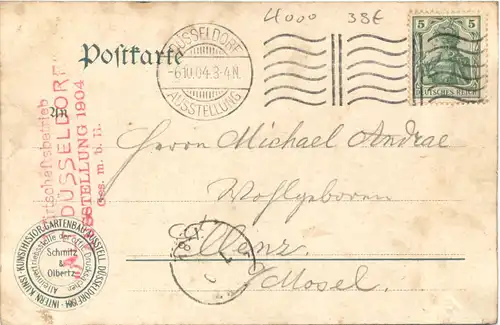 4000 38€
Postkarte
DÜSSELDORF
-6.10.04.3-4N.
AUSSTELLUNG
5 5
DEUTSCHES REICH
An
Wirtschaftsbetrieb
DÜSSELDORF
AUSSTELLUNG 1904
Ges. m. b. H.
Herrn Michael Andrae
Wohlgeboren
Mosel.
INTERN. KUNST-KUNSTHISTOR. GARTENBAU AUSSTELL. DÜSSELDORF 1904
Schmitz
&
Olbertz